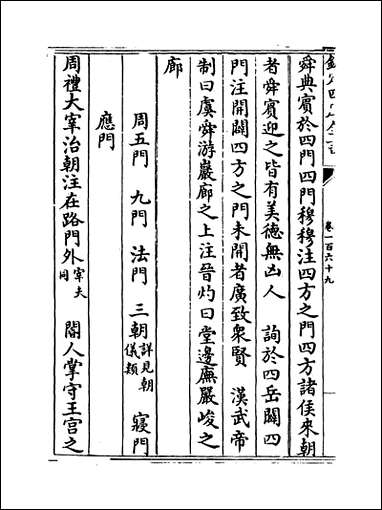 欽定四庫全書
卷一百六十九
舜典賓於四門四門穆穆注四方之門四方諸侯來朝
者舜賓迎之皆有美德無凶人 詢於四岳闢四
門注開闢四方之門未開者廣致衆賢 漢武帝
制曰虞舜游巖廊之上注晉灼曰堂邊廡嚴峻之
廊
周五門 九門 法門 三朝詳見朝儀類 寢門
應門
周禮大宰治朝注在路門外宰夫同 閽人掌守王宫之